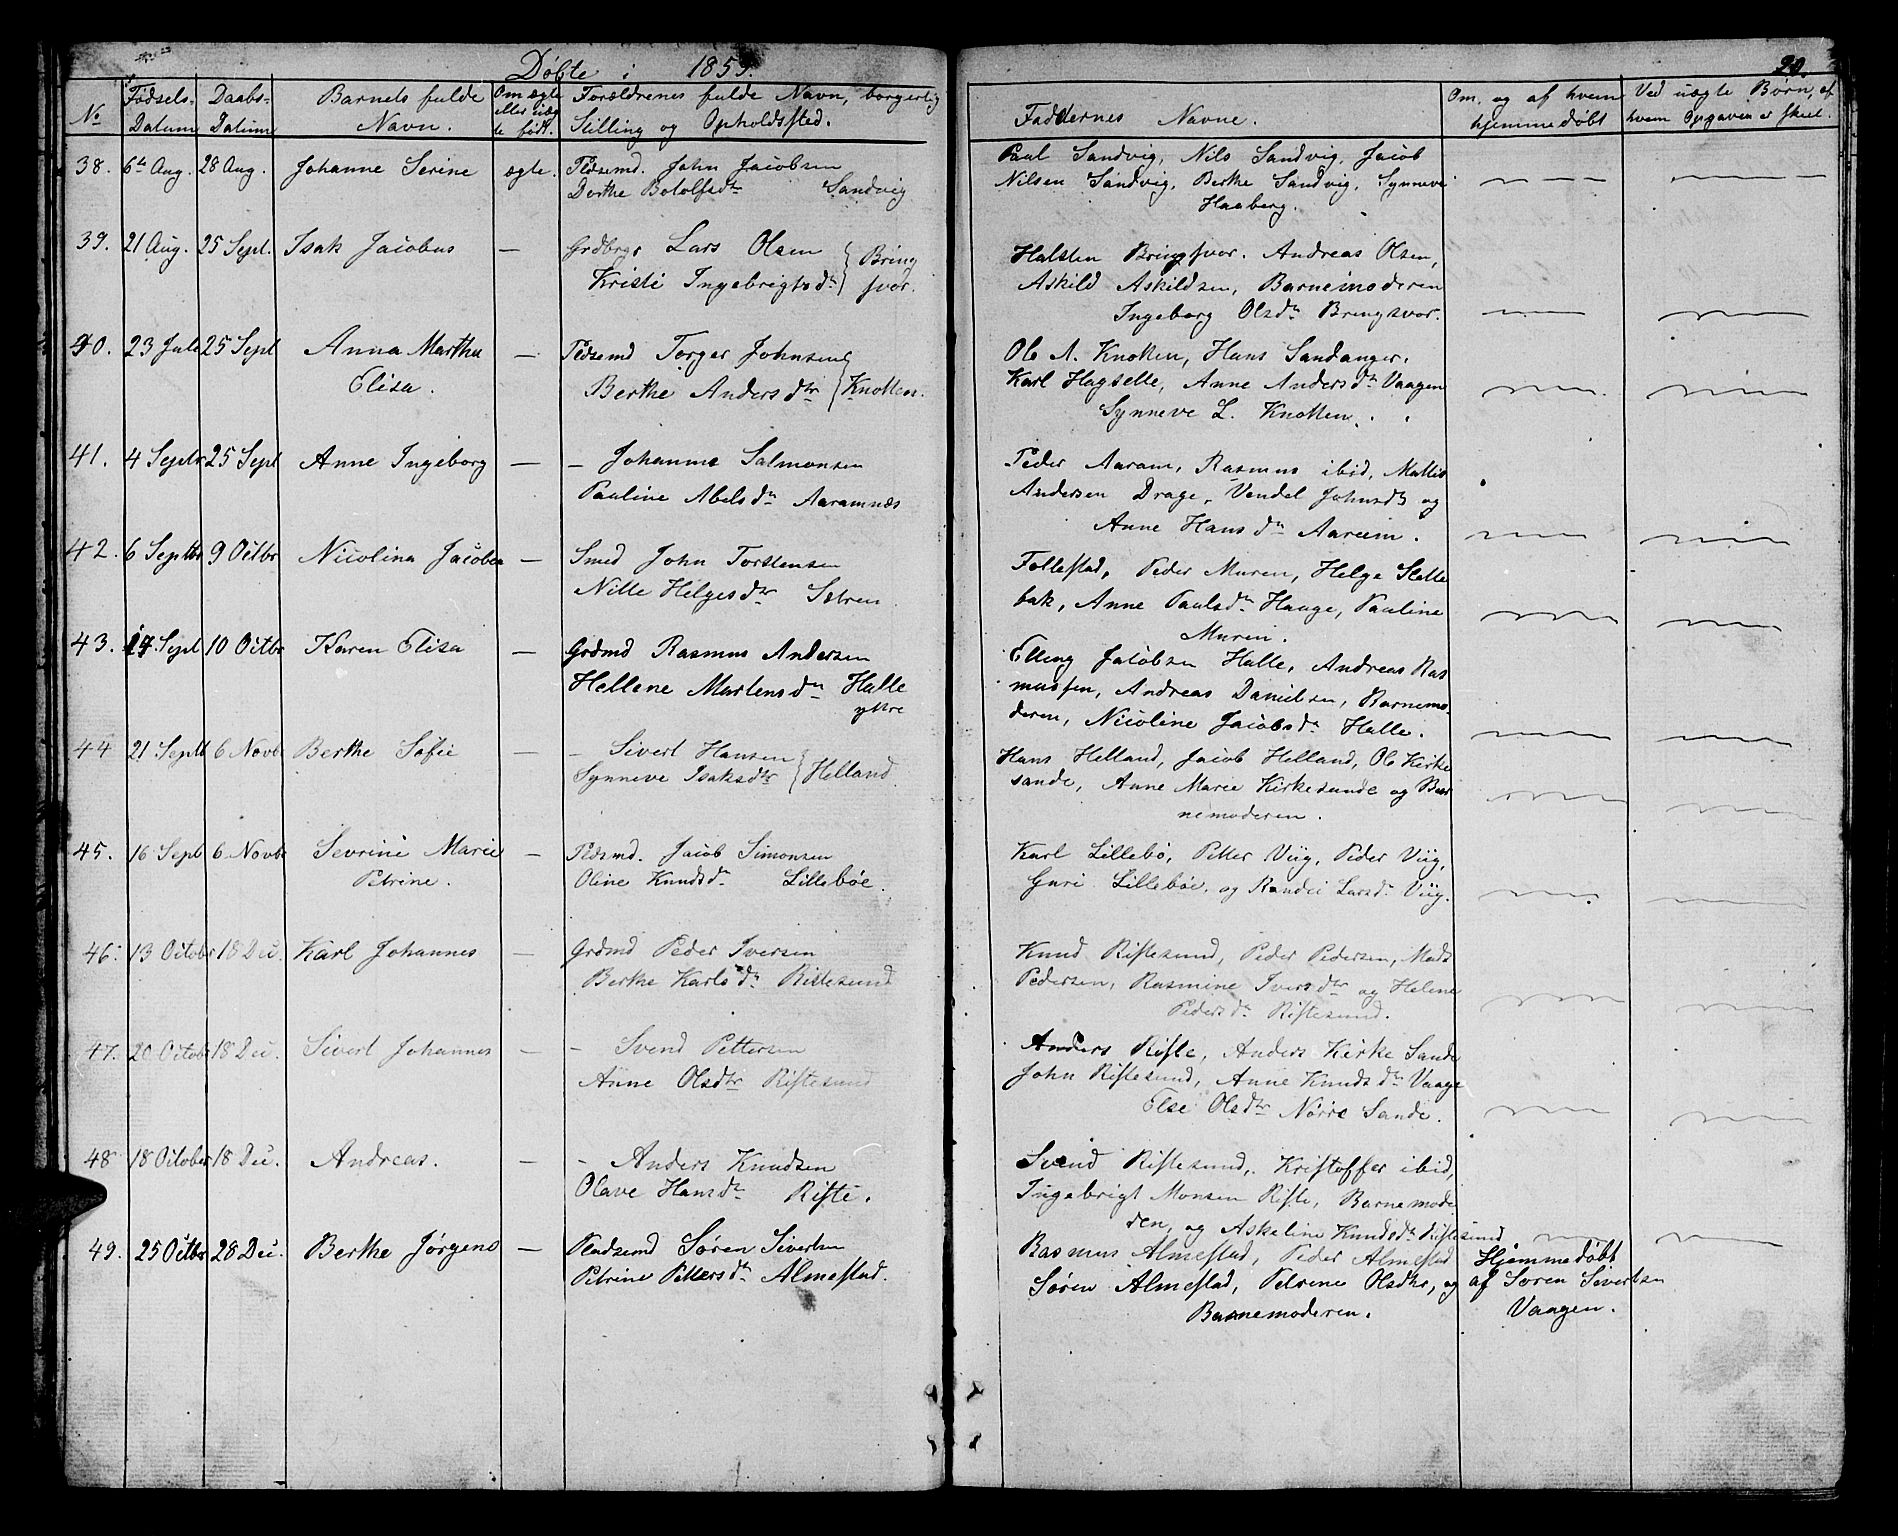 Döbte i 1853.
20.
No
Födsels-Datum
Daabs-Datum
Barnets fulde Navn.
Om ægte eller uægte födt.
Forældrenes fulde Navn, borgerlig Stilling og Opholdssted.
Faddernes Navne.
Om, og af hvem hjemmedöbt
Ved uægte Börn, af hvem Opgaven er skeet.
38. 6te Aug. 28 Aug. Johanne Serine ægte. Pldsemd. John Jacobsen
Dorthe Botolfsdtr Sandvig
Paul Sandvig, Nils Sandvig, Jacob
Nilsen Sandvig, Berthe Sandvig, Synneve
Haaberg.
39. 21 Aug. 25 Sept. Isak Jacobus — Grdbrgr Lars Olsen
Kristi Ingebrigtsdtr Bringsvor.
Halsten Bringsvor. Andreas Olsen,
Askild Askildsen, Barnemoderen
Ingeborg Olsdtr Bringsvor.
40. 23 Juli 25 Sept Anna Martha — Pldsemd Torger Johnsen
Elisa. Berthe Andersdtr Knotten.
Ole A. Knotten, Hans Sandanger.
Karl Hagselle, Anne Andersdtr Vaagen
Synneve L. Knotten.
41. 4 Septr 25 Sept Anne Ingeborg — – Johannes Salmonsen
Pauline Abelsdtr Aaramnæs
Peder Aaram, Rasmus ibid, Mattis
Andersen Drage, Vendel Johnsdtr og
Anne Hansdtr Aareim.
42. 6 Septbr 9 Octbr Nicolina Jacobea — Smed John Torstensen
Nille Helgesdtr Sætren
Follestad, Peder Muren, Helge Slette
bak, Anne Paulsdtr Hauge, Pauline
Muren.
43. 17 Sept 10 Octbr Karen Elisa — Grdmd Rasmus Andersen
Hellene Martensdtr Halle
yttre
Elling Jacobsen Halle, Andreas Ras
mussen, Andreas Danielsen, Barnemo-
deren, Nicoline Jacobsdtr Halle.
44 21 Septb 6 Novb Berthe Sofie — – Sivert Hansen
Synneve Isaksdtr Helland
Hans Helland, Jacob Helland, Ole Kirke
sande, Anne Marie Kirkesande og Bar
nemoderen.
45. 16 Sept 6 Novbr Sevrine Marie — Pldsmd. Jacob Simonsen
Petrine. Oline Knudsdtr Lillebøe.
Karl Lillebö, Petter Viig, Peder Viig,
Guri Lillebøe, og Randei Larsdtr Viig.
46. 13 October 18 Dec. Karl Johannes — Grdmd Peder Iversen
Berthe Karlsdtr Riftesund
Knud Riftesund, Peder Pedersen, Mads
Pedersen, Rasmine Iversdtr og Helene
Pedersdtr Riftesund.
47. 20 Octobr 18 Dec. Sivert Johannes — – Svend Pettersen
Anne Olsdtr Riftesund
Anders Rifte, Anders Kirke Sande
John Riftesund, Anne Knudsdtr Vaage
Else Olsdtr Nörre Sande.
48 18 October 18 Dec. Andreas. — – Anders Knudsen
Olave Hansdtr Rifte.
Svend Riftesund, Kristoffer ibid,
Ingebrigt Monsen Rifte, Barnemode
ren, og Askeline Knudsdtr Riftesund
49. 25 Octbr 28 Dec. Berthe Jørgene — Pladsemd Søren Sivertsen
Petrine Pettersdtr Almestad.
Rasmus Almestad, Peder Almestad
Søren Almestad, Petrine Olsdtr, og
Barnemoderen.
Hjemmedöbt
af Søren Sivertsen
Vaagen.